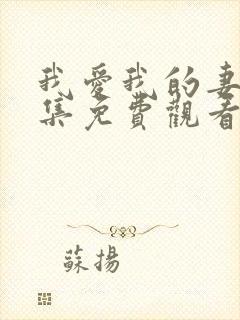 我愛我的妻
集免費觀看
蘇揚